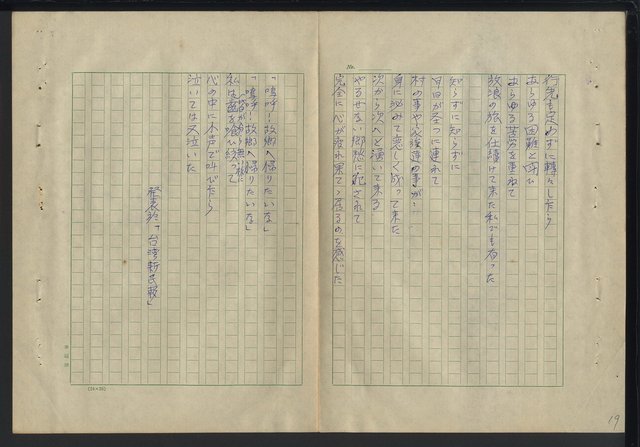 No.
行先も定めずに轉々しながら
あらゆる困難と闘ひ
あらゆる苦労を重ねて
放浪の旅を仕續けて来た私でも有った
知らず知らずに
年日が立つに連れて
村の事や家族達の事が
身に泌みて恋しく成って来た
次から次へと湧いて来る
やるせない郷愁に犯されて
完全に心が疲れ果てゝ居るのを感じた
「嗚呼！故郷へ帰りたいな」
「嗚呼！故郷へ帰りたいな」
私は歯を喰ひ絞って
心の中に大声で叫びながら
泣いては又泣いた
發表於「台灣新民報」
(24×25)
19